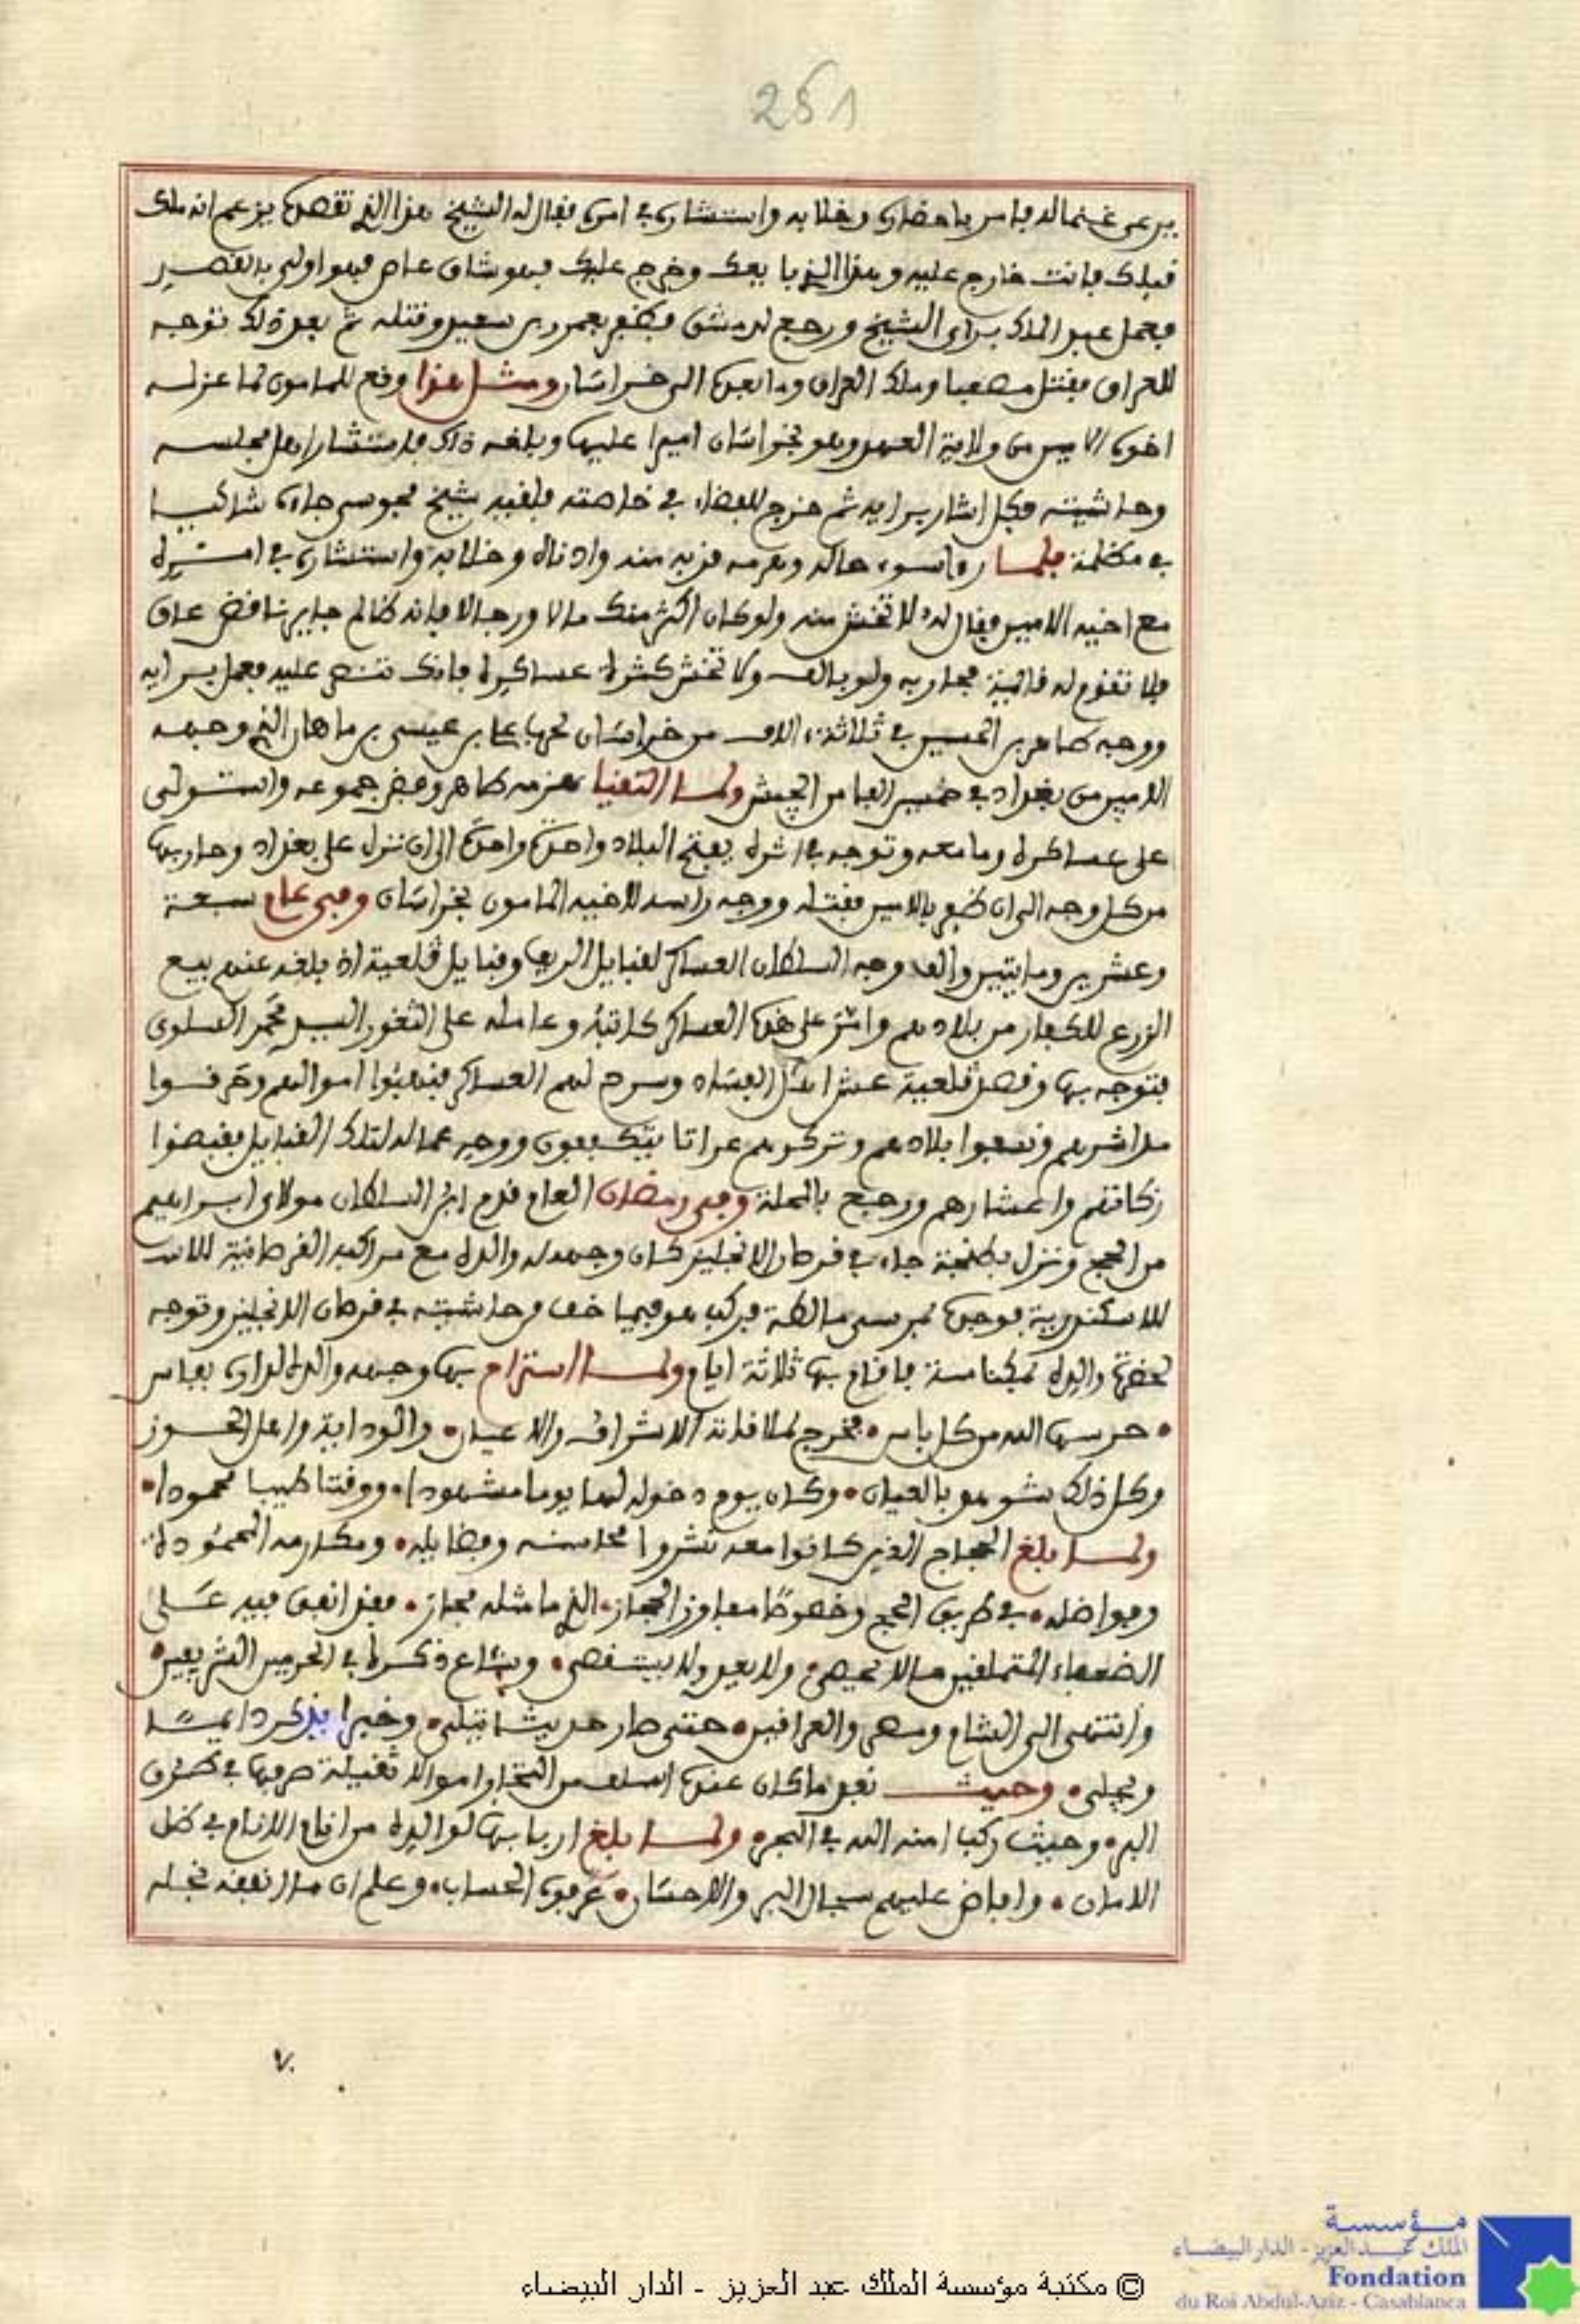 251
يرعى غنما له فامر باحضاره وخلا به واستشاره في امره فقال له الشيخ هذا الذي تقصده يزعم انه ملك
قبلك فانت خارج عليه وهذا الذي بايعك وخرج عليك فهو شاق عاص فهو اولى بالقصد
فعمل عبد الملك براي الشيخ ورجع لدمشق فظفر بعمرو بن سعيد وقتله ثم بعد ذلك توجه
للعراق فقتل مصعبا وملك العراق وما بعده الى خراسان ومثل هذا وقع للمامون لما عزله
اخوه الامين من ولاية العهد وهو بخراسان اميرا عليها وبلغه ذلك فاستشار اهل مجلسه
وحاشيته فكل اشار برايه ثم خرج للفضاء في خاصته فلقيه شيخ مجوسي جاءه شاكيا
في مظلمة فلما رءا سوء حاله وهرمه قربه منه وادناه وخلا به واستشاره في امره
مع اخيه الامين فقال له لا تخش منه ولو كان اكثر منك مالا ورجالا فانه ظالم جاير ناقض عاق
فلا تقوم له قائمة فحاربه ولو بالف ولا تخش كثرة عساكره فانك تنصر عليه فعمل برايه
ووجه طاهر بن الحسين في ثلاثة الاف من خراسان لحرب علي بن عيسى بن ماهان الذي وجهه
الامين من بغداد في خمسين الفا من الجيش ولما التقيا هزمه طاهر وفض جموعه واستولى
على عساكره وما معه وتوجه في اثره يفتح البلاد واحدة واحدة الى ان نزل على بغداد وحاربها
من كل وجه الى ان ظفر بالامين فقتله ووجه راسه لاخيه المامون بخراسان وفي عام سبعة
وعشرين ومايتين والف وجه السلطان العساكر لقبايل الريف وقبايل قلعية اذ بلغه عنهم بيع
الزرع للكفار من بلادهم وامر على هذه العساكر كاتبه وعامله على الثغور السيد محمد السلوي
فتوجه بها وقصد قلعية عش اهل الفساد وسرح لهم العساكر فنهبوا اموالهم وحرقوا
مداشرهم ونسفوا بلادهم وتركوهم عراتا يتكففون ووجه عماله لتلك القبايل فقبضوا
زكاتهم واعشارهم ورجع بالمحلة وفي رمضان العام قدم ابن السلطان مولاي ابراهيم
من الحج ونزل بطنجة جاء في قرصان الانجليز كان وجهه له والده مع مراكبه القرصانية
للاسكندرية فوجده بمرسى مالطة فركب هو فيما خف من حاشيته في قرصان الانجليز وتوجه
لحضرة والده بمكناسة فاقام بها ثلاثة ايام ولما استراح بها وجهه والده لداره بفاس
حرسها الله من كل باس فخرج لملاقاته الاشراف والاعيان والوداية واهل الحوز
وكل ذلك بشوفهم بالعيان وكان يوم دخوله لها يوما مشهودا ووقتا طيبا محمودا
ولما بلغ الحجاج الذين كانوا معه نشروا محاسنه وفضايله ومكارمه المحمودة
وفواضله في طريق الحج وخصوصا مفاوز الحجاز الذي ما مثله مجاز فقد انفق فيه على
الضعفاء المتملقين مالا يحصى ولا يعد ولا يستقصى وشاع ذكره في الحرمين الشريفين
وانتهى الى الشام ومصر والعراقين حتى صار حديثا يتلى وخبرا يذكر دايما
ويجلى وحيث نفد ما كان عنده استلف من التجار اموالا ثقيلة صرفها في طرق
البر وحيث ركب امنه الله في البحر ولما بلغ اربابها لوالده من اقام الانام في ظل
الامان وافاض عليهم سجال البر والاحسان عرفوه الحساب وعلم ان ما انفقه نجله
٧٠
مؤسسة
الملك عبد العزيز - الدار البيضاء
Fondation
du Roi Abdul-Aziz - Casablanca
© مكتبة مؤسسة الملك عبد العزيز - الدار البيضاء